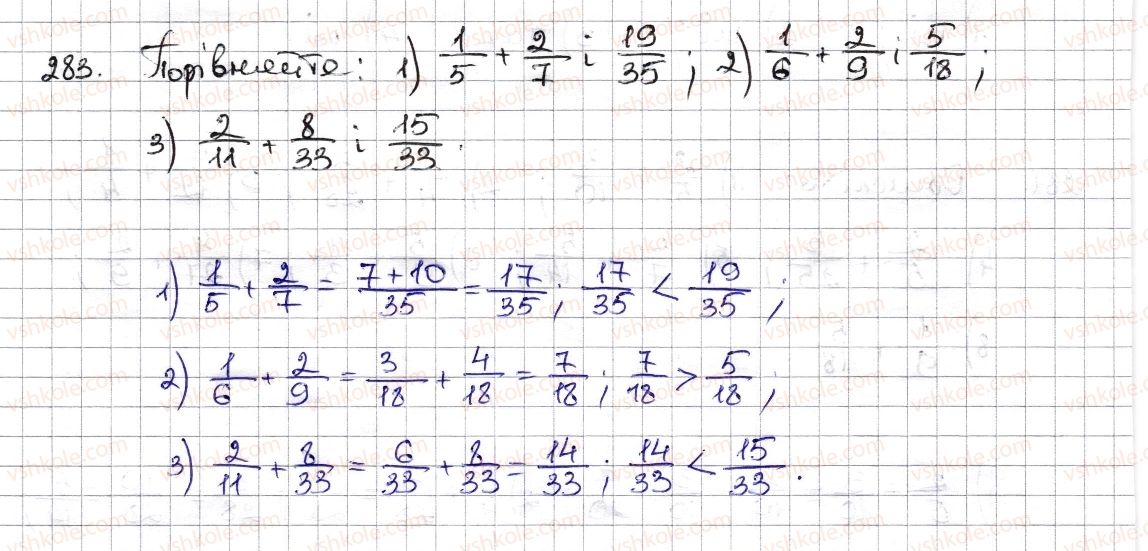 283. Порівняйте: 1) 1/5 + 2/7 і 19/35; 2) 1/6 + 2/9 і 5/18;
3) 2/11 + 8/33 і 15/33.
1) 1/5 + 2/7 = (7+10)/35 = 17/35; 17/35 < 19/35;
2) 1/6 + 2/9 = 3/18 + 4/18 = 7/18; 7/18 > 5/18;
3) 2/11 + 8/33 = 6/33 + 8/33 = 14/33; 14/33 < 15/33.